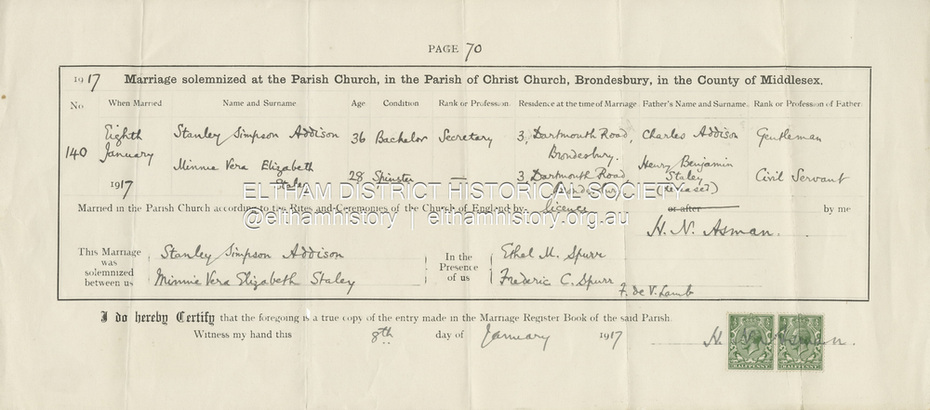 PAGE 70
1917 Marriage solemnized at the Parish Church, in the Parish of Christ Church, Brondesbury, in the County of Middlesex.
No When Married Name and Surname Age Condition Rank or Profession. Residence at the time of Marriage Father's Name and Surname. Rank or Profession of Father
140 Eighth January 1917
Stanley Simpson Addison 36 Bachelor Secretary 3, Dartmouth Road, Brondesbury. Charles Addison Gentleman
Minnie Vera Elizabeth Staley 28 Spinster — 3, Dartmouth Road Brondesbury Henry Benjamin Staley (deceased) Civil Servant
ELTHAM DISTRICT HISTORICAL SOCIETY
@elthamhistory | elthamhistory.org.au
Married in the Parish Church according to the Rites and Ceremonies of the Church of England by licence or after by me
H. N. Asman.
This Marriage was solemnized between us
Stanley Simpson Addison
Minnie Vera Elizabeth Staley
In the Presence of us
Ethel M. Spurr
Frederic C. Spurr F. de V. Lamb
I do hereby Certify that the foregoing is a true copy of the entry made in the Marriage Register Book of the said Parish.
Witness my hand this 8th day of January 1917 H. N. Asman.
HALFPENNY HALFPENNY